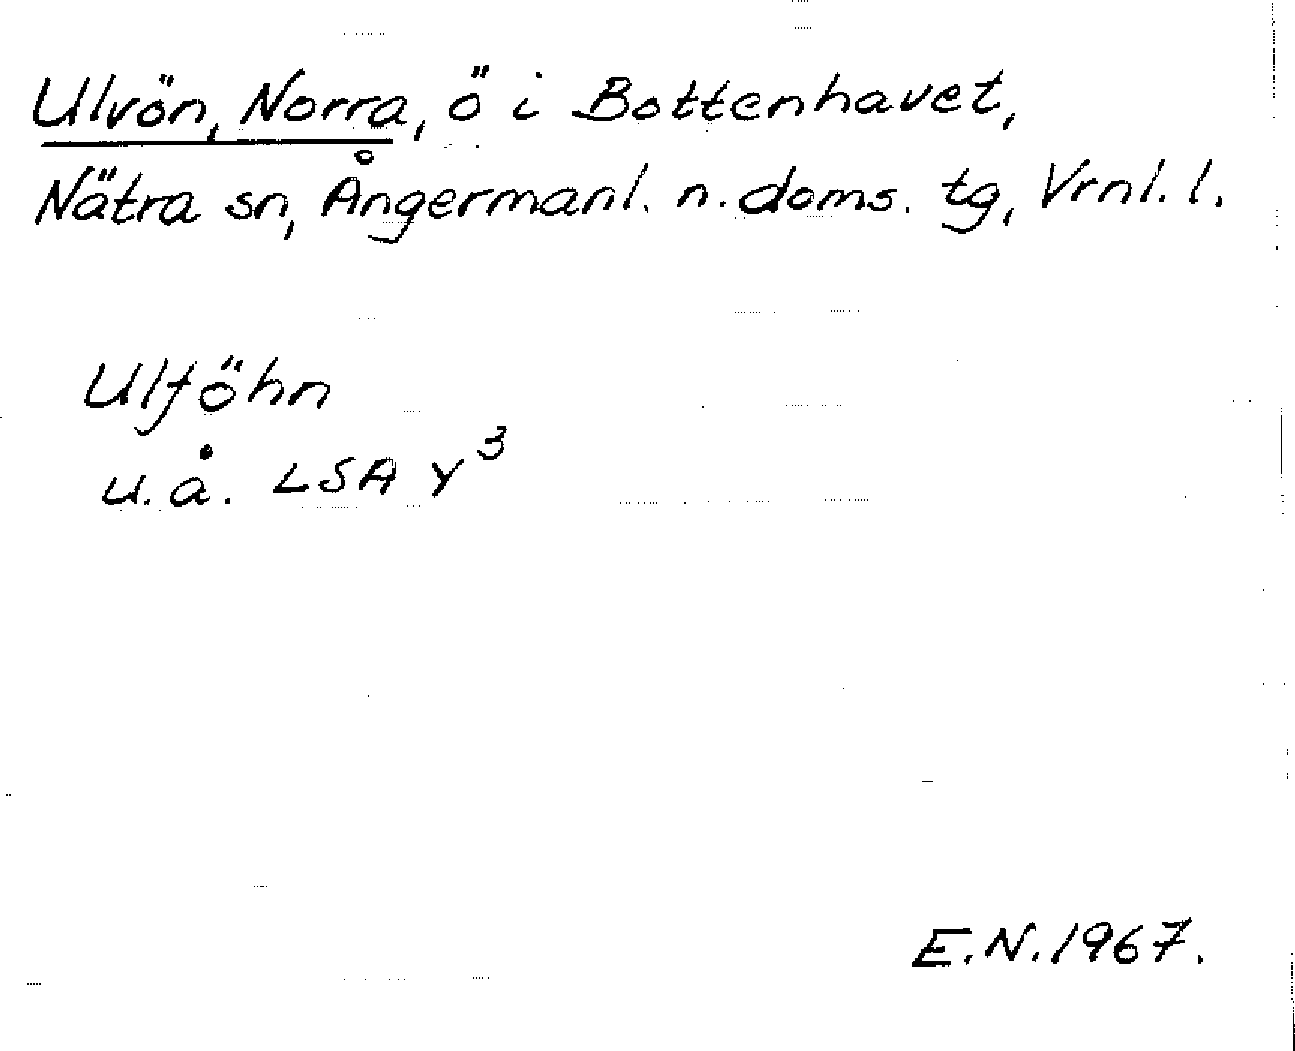 Ulvön, Norra, ö i Bottenhavet,
Nätra sn, Ångermanl. n. doms. tg, Vrnl. l.
Ulföhn
u. å. LSA Y³
E.N. 1967.